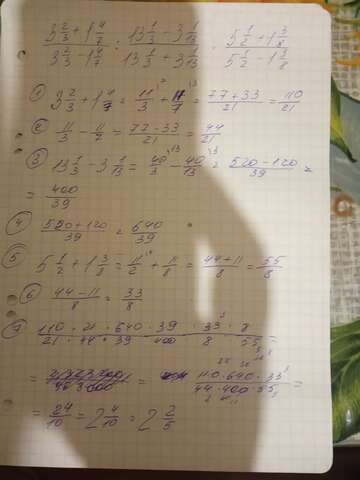 (3 2/3 + 1 4/7)/(3 2/3 - 1 4/7) : (13 1/3 - 3 1/13)/(13 1/3 + 3 1/13) · (5 1/2 + 1 3/8)/(5 1/2 - 1 3/8)
① 3 2/3 + 1 4/7 = 11/3 + 11/7 = (77+33)/21 = 110/21
② 11/3 - 11/7 = (77-33)/21 = 44/21
③ 13 1/3 - 3 1/13 = 40/3 - 40/13 = (520-120)/39 =
= 400/39
④ (520+120)/39 = 640/39
⑤ 5 1/2 + 1 3/8 = 11/2 + 11/8 = (44+11)/8 = 55/8
⑥ (44-11)/8 = 33/8
⑦ (110 · 21 · 640 · 39 · 33 · 8)/(21 · 44 · 39 · 400 · 8 · 55) =
= = (110·640·33)/(44·400·55) =
= 24/10 = 2 4/10 = 2 2/5